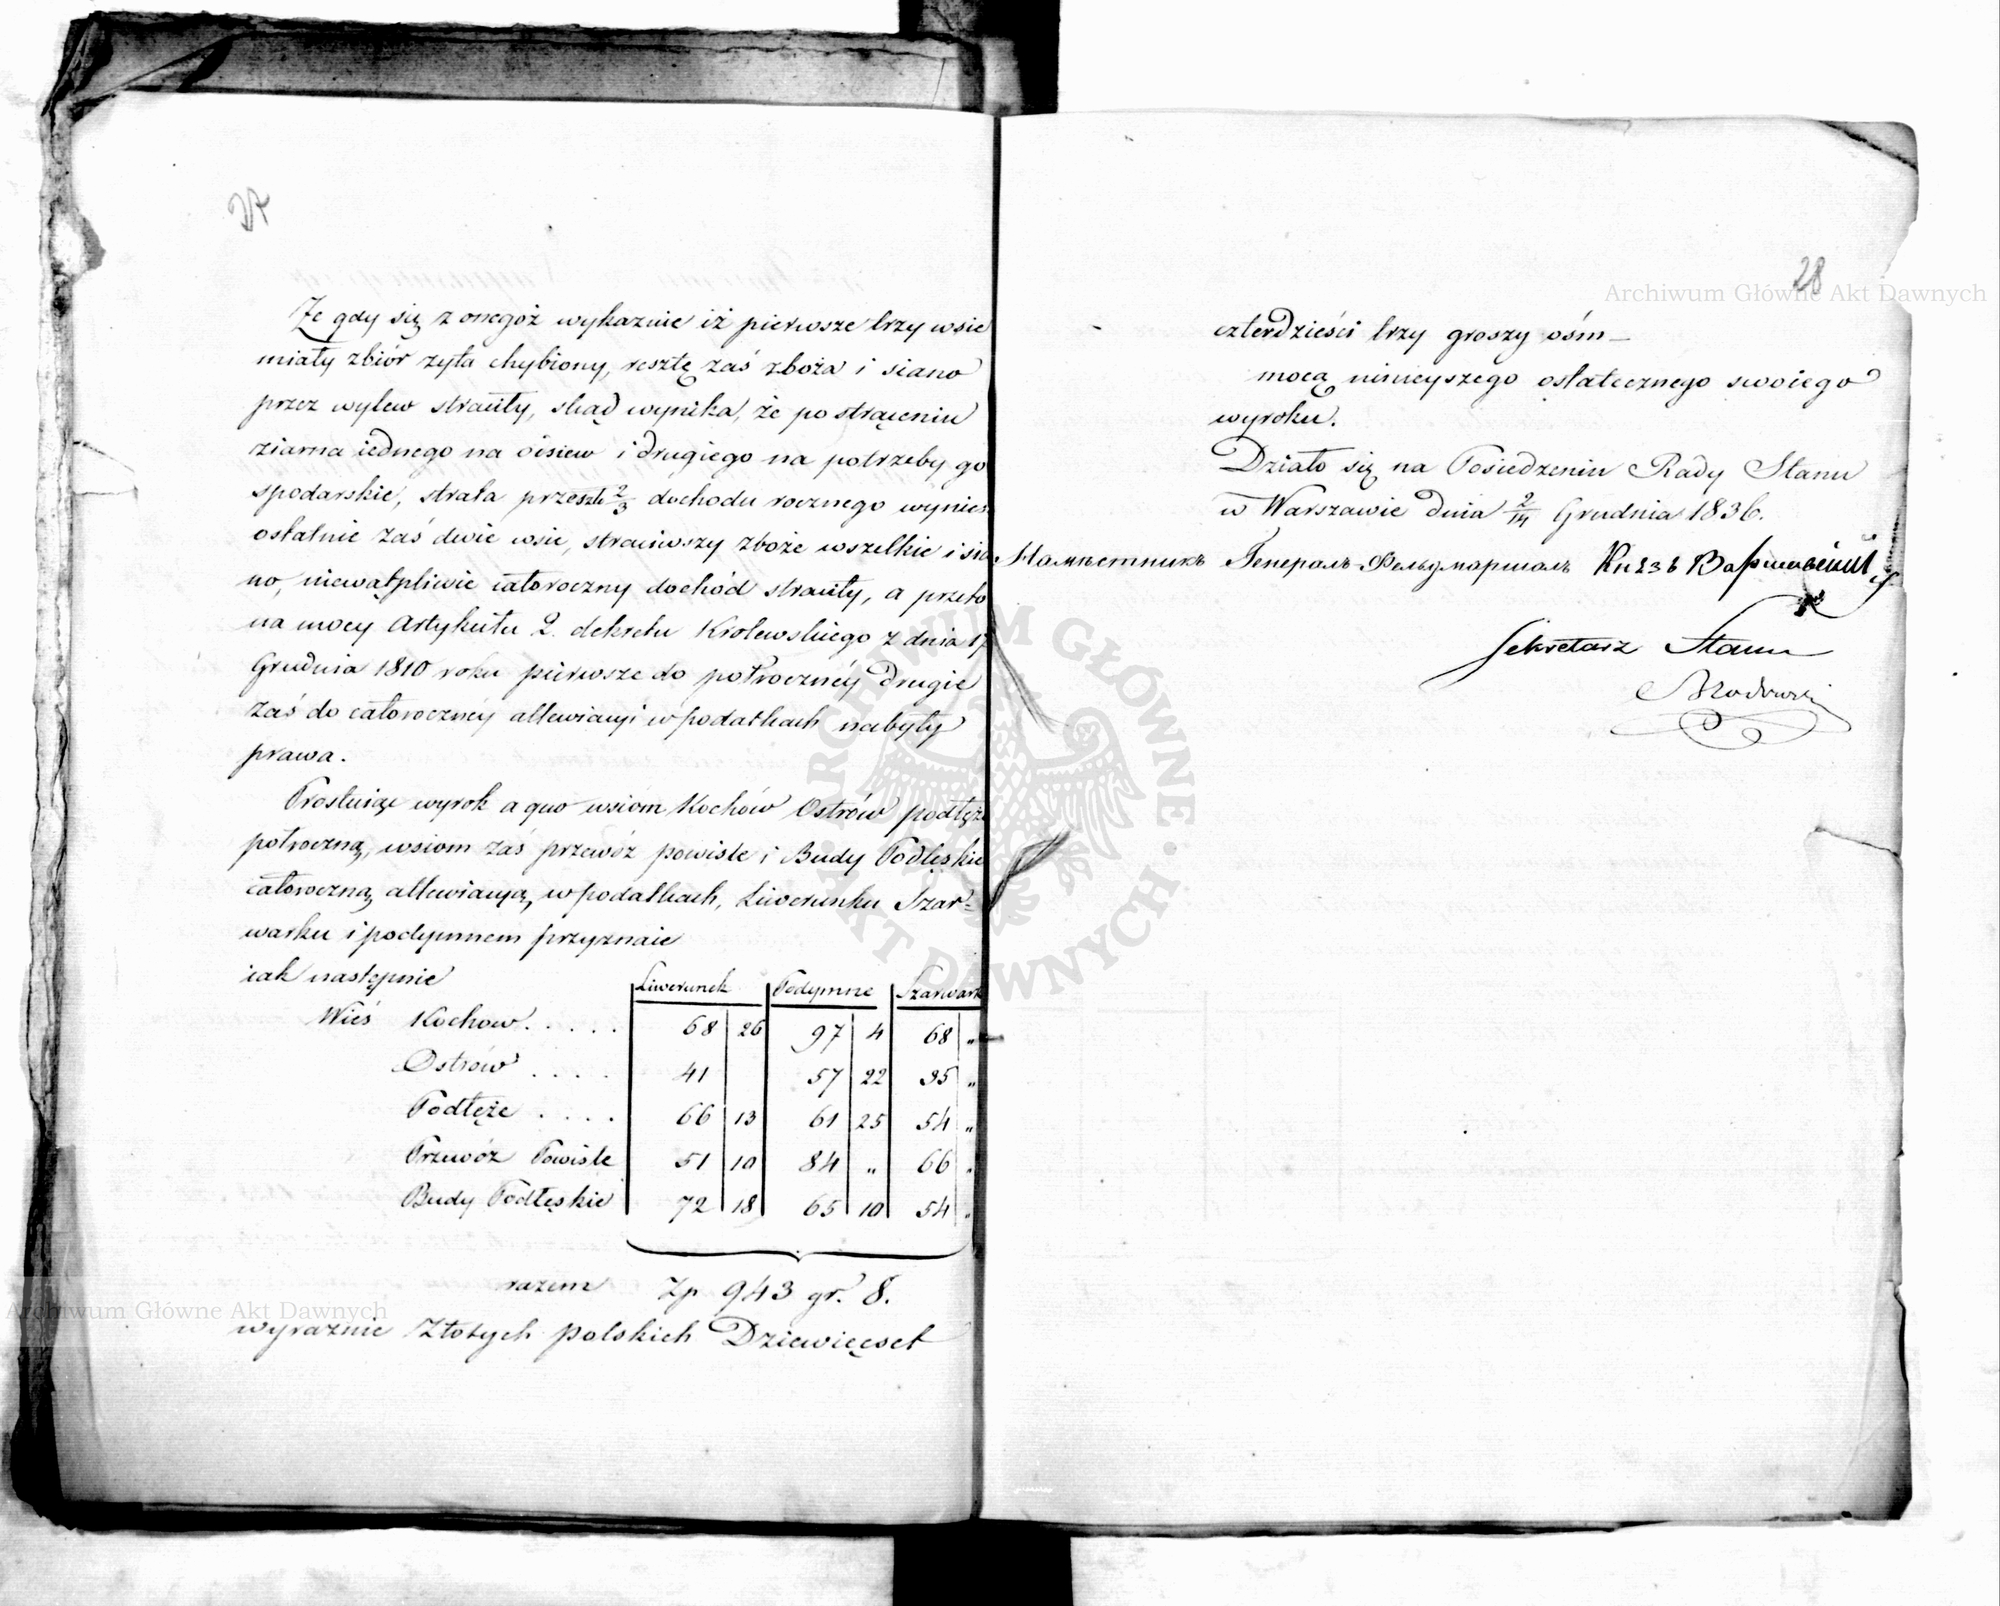 27
Że gdy się z onegóż wykazuie iż pierwsze trzy wsie
miały zbiór żyta chybiony, resztę zaś zboża i siano
przez wylew straciły, skąd wynika, że po strąceniu
ziarna iednego na osiew i drugiego na potrzeby go
spodarskie, strata przeszło 2/3 dochodu rocznego wynies
ostatnie zaś dwie wsie, straciwszy zboże wszelkie i sia
no, niewątpliwie całoroczny dochód straciły, a przeto
na mocy Artykułu 2. dekretu Krolewskiego z dnia 17
Grudnia 1810 roku pierwsze do półrocznéy drugie
zaś do całorocznéy allewiacyi w podatkach nabyły
prawa.
Prostuiąc wyrok a quo wsiom Kochów Ostrów podłęże
półroczną, wsiom zaś przewóz powisle i Budy Podłęskie
całoroczną allewiacyą, w podatkach, Liwerunku Szar=
warku i podymnem przyznaie
iak następnie
Liwerunek Podymne Szarwark
Wieś Kochow. . . . . 68 26 97 4 68 „
Ostrów . . . . 41 57 22 35 „
Podłęże . . . . 66 13 61 25 54 „
Przewóz Powisle 51 10 84 „ 66 „
Budy Podłęskie 72 18 65 10 54 „
razem Zp 943 gr. 8.
wyraznie Złotych polskich Dziewięcset
28
czterdzieści trzy groszy ośm –
mocą ninieyszego ostatecznego swoiego
wyroku.
Działo się na Posiedzeniu Rady Stanu
w Warszawie dnia 2/14 Grudnia 1836.
Намѣстникъ Генералъ-Фельдмаршалъ Князь Варшавскій
Sekretarz Stanu
Archiwum Główne Akt Dawnych
Archiwum Główne Akt Dawnych
ARCHIWUM GŁÓWNE · AKT DAWNYCH ·